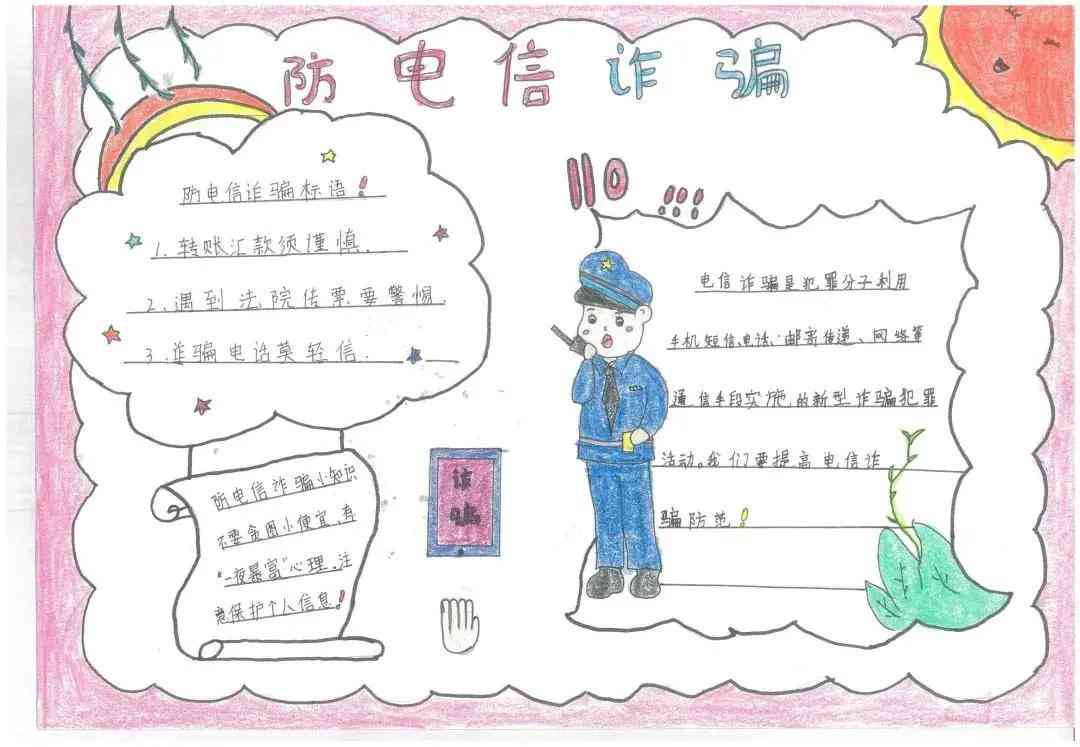 防电信诈骗
防电信诈骗标语！
1.转账汇款须谨慎.
2.遇到法院传票要警惕.
3.诈骗电话莫轻信.
防电信诈骗小知识
不要贪图小便宜、有
“一夜暴富”心理，注
意保护个人信息！
诈
骗
110 !!!
电信诈骗是犯罪分子利用
手机短信、电话、邮寄传递、网络等
通信手段实施的新型诈骗犯罪
活动。我们要提高电信诈
骗防范！